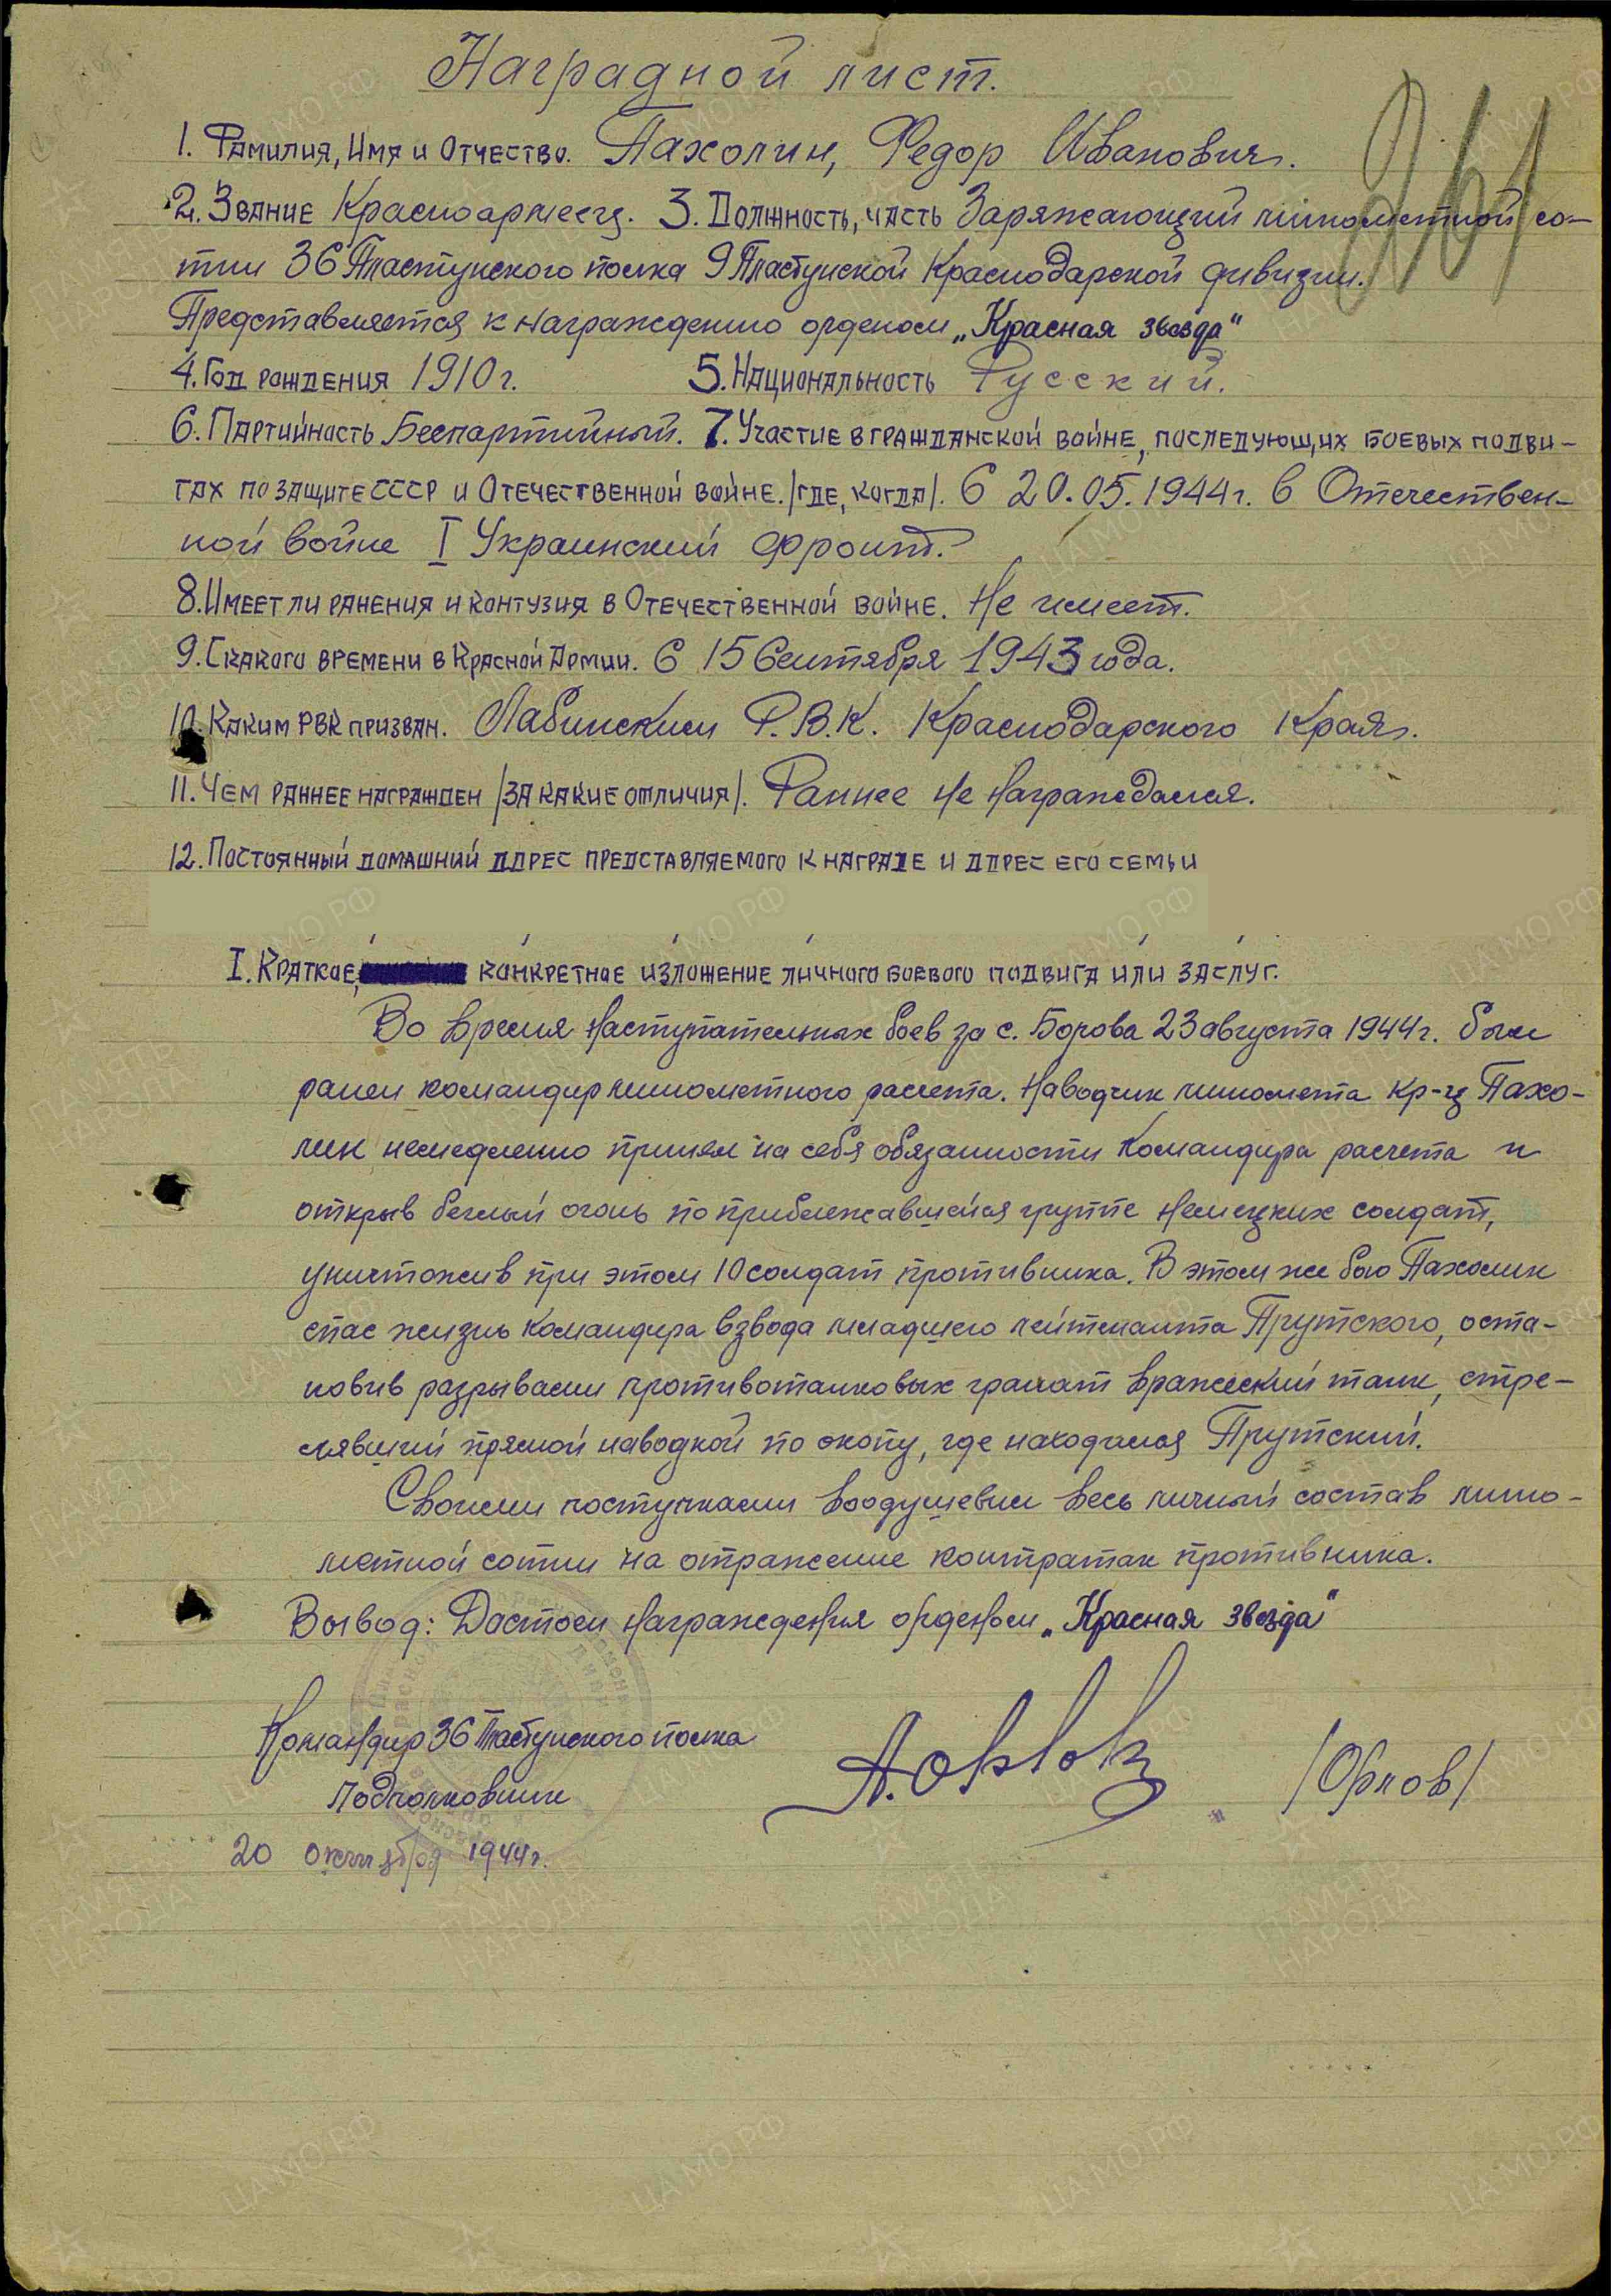 Наградной лист.
1. Фамилия, Имя и Отчество. Пахолин, Федор Иванович.
2. Звание Красноармеец. 3. Должность, часть Заряжающий минометной со-
тни 36 Пластунского полка 9 Пластунской Краснодарской дивизии.
Представляется к награждению орденом „Красная звезда“
4. Год рождения 1910 г. 5. Национальность Русский.
6. Партийность Беспартийный. 7. Участие в гражданской войне, последующих боевых подви-
гах по защите СССР и Отечественной войне. /где, когда/. С 20.05.1944 г. в Отечествен-
ной войне I Украинский фронт.
8. Имеет ли ранения и контузия в Отечественной войне. Не имеет.
9. С какого времени в Красной Армии. С 15 Сентября 1943 года.
10. Каким РВК призван. Лабинским Р.В.К. Краснодарского Края.
11. Чем раннее награжден /за какие отличия/. Раннее не награждался.
12. Постоянный домашний адрес представляемого к награде и адрес его семьи
I. Краткое, конкретное изложение личного боевого подвига или заслуг.
Во время наступательных боев за с. Борова 23 августа 1944 г. был
ранен командир минометного расчета. Наводчик миномета кр-ц Пахо-
лин немедленно принял на себя обязанности командира расчета и
открыв беглый огонь по приближавшейся группе немецких солдат,
уничтожив при этом 10 солдат противника. В этом же бою Пахолин
спас жизнь командира взвода младшего лейтенанта Прутского, оста-
новив разрывами противотанковых гранат вражеский танк, стре-
лявший прямой наводкой по окопу, где находился Прутский.
Своими поступками воодушевил весь личный состав мино-
метной сотни на отражение контратак противника.
Вывод: Достоин награждения орденом „Красная звезда“
Командир 36 Пластунского полка
подполковник /Орлов/
20 октября 1944 г.
ПАМЯТЬ НАРОДА
ЦА МО РФ